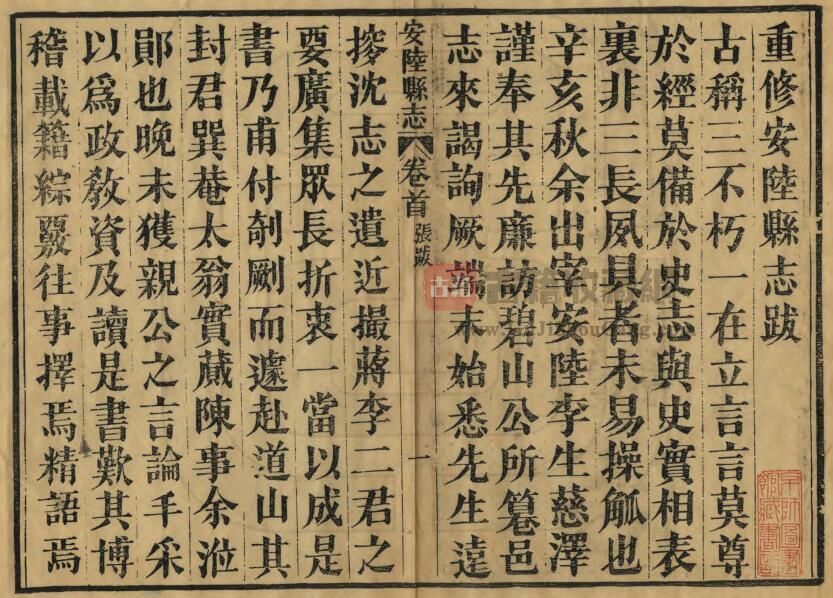 重修安陸縣志跋
古稱三不朽一在立言言莫尊
於經莫備於史志與史實相表
裏非三長夙具者未易操觚也
辛亥秋余出宰安陸李生慈澤
謹奉其先廉訪碧山公所篹邑
志來謁詢厥端末始悉先生遠
安陸縣志 卷首 張跋 一
摉沈志之遺近撮蔣李二君之
要廣集眾長折衷一當以成是
書乃甫付剞劂而遽赴道山其
封君巽菴太翁實蕆陳事余涖
鄖也晚未獲親公之言論手采
以爲政教資及讀是書歎其博
稽載籍綜覈往事擇焉精語焉
古籍